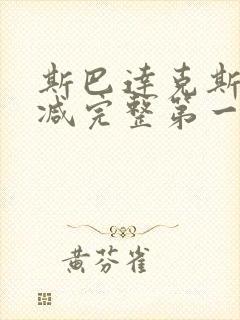 斯巴达克斯
减完整第一
黄芬雀